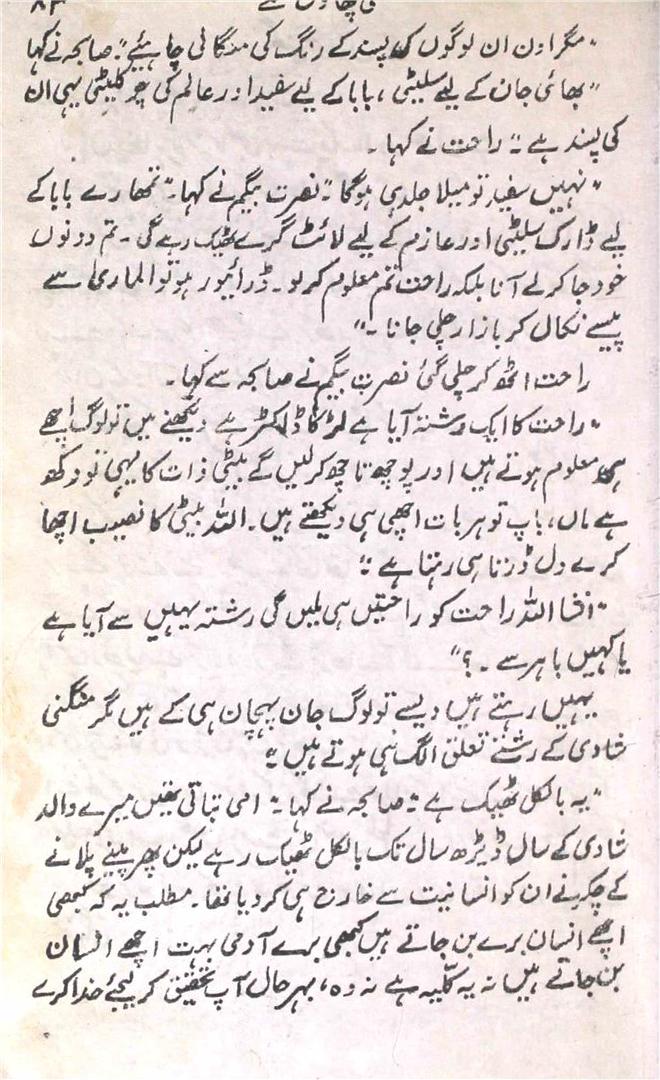 ۸۳ کی چھاؤں سے
"مگر اون ان لوگوں کی پسند کے رنگ کی منگانی چاہئیے" صابحہ نے کہا
"بھائی جان کے لیے سلیٹی، بابا کے لیے سفید اور عالم کی چوکلیٹی یہی ان
کی پسند ہے" راحت نے کہا۔
"نہیں سفید تو میلا جلدی ہوگا" نصرت بیگم نے کہا۔ "تمھارے بابا کے
لیے ڈارک سلیٹی اور عازم کے لیے لائٹ گرے ٹھیک رہے گی۔ تم دونوں
خود جا کر لے آنا بلکہ راحت تم معلوم کر لو۔ ڈرائیور ہو تو الماری سے
پیسے نکال کر بازار چلی جانا۔"
راحت اٹھ کر چلی گئی نصرت بیگم نے صابحہ سے کہا۔
"راحت کا ایک رشتہ آیا ہے لڑکا ڈاکٹر ہے دیکھنے میں تو لوگ اچھے
ہی معلوم ہوتے ہیں اور پوچھ تاچھ کر لیں گے بیٹی ذات کا یہی تو دکھ
ہے ماں، باپ تو ہر بات اچھی ہی دیکھتے ہیں۔ اللہ بیٹی کا نصیب اچھا
کرے دل ڈرتا ہی رہتا ہے"
"انشا اللہ راحت کو راحتیں ہی ملیں گی رشتہ یہیں سے آیا ہے
یا کہیں باہر سے۔؟"
یہیں رہتے ہیں ویسے تو لوگ جان پہچان ہی کے ہیں مگر منگنی
شادی کے رشتے تعلق الگ ہی ہوتے ہیں"
"یہ بالکل ٹھیک ہے" صابحہ نے کہا۔ "امی بتاتی تھیں میرے والد
شادی کے سال ڈیڑھ سال تک بالکل ٹھیک رہے لیکن پھر پینے پلانے
کے چکر نے ان کو انسانیت سے خارج ہی کر دیا تھا۔ مطلب یہ کہ کبھی
اچھے انسان برے بن جاتے ہیں کبھی برے آدمی بہت اچھے انسان
بن جاتے ہیں نہ یہ کلّیہ ہے نہ وہ، بہرحال آپ تحقیق کر لیجئے خدا کرے